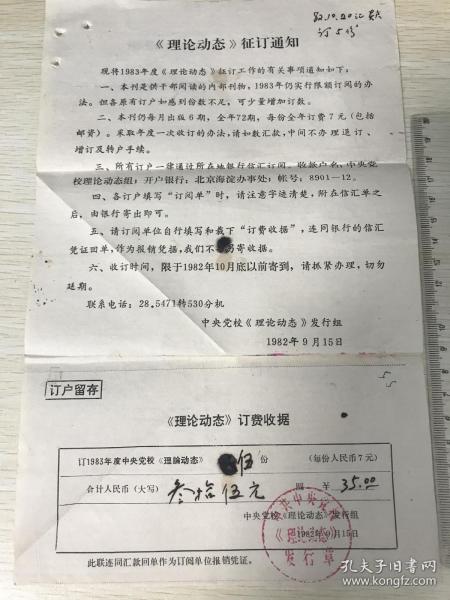 82.10.20汇款
订5份
《理论动态》征订通知
现将1983年度《理论动态》征订工作的有关事项通知如下：
一、本刊是供干部阅读的内部刊物，1983年仍实行限额订阅的办
法。但各原有订户如感到份数不足，可少量增加订数。
二、本刊仍每月出版6期，全年72期，每份全年订费7元（包括
邮资）。采取年度一次收订的办法，请如数汇款，中间不办理退订、
增订及转户手续。
三、所有订户一律通过所在地银行信汇订阅。收款户名：中央党
校理论动态组；开户银行：北京海淀办事处；帐号：8901—12。
四、各订户填写“订阅单”时，请注意字迹清楚，附在信汇单之
后，由银行寄出即可。
五、请订阅单位自行填写和裁下“订费收据”，连同银行的信汇
凭证回单，作为报销凭据，我们不另寄收据。
六、收订时间，限于1982年10月底以前寄到，请抓紧办理，切勿
延期。
联系电话：28.5471转530分机
中央党校《理论动态》发行组
1982年9月15日
订户留存
《理论动态》订费收据
订1983年度中央党校《理論动态》 伍份 （每份人民币7元）
合计人民币（大写） 叁拾伍元 ￥35.00
中央党校《理论动态》发行组
1982年9月15日
中共中央党校
《理论动态》
发行章
此联连同汇款回单作为订阅单位报销凭证。
孔夫子旧书网